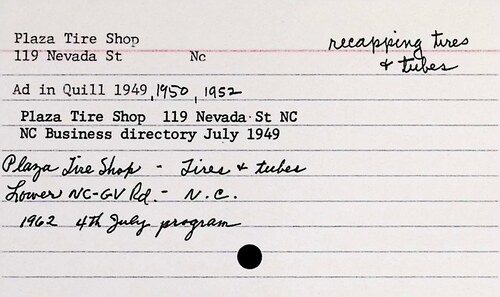 Plaza Tire Shop
recapping tires
119 Nevada St Nc
& tubes
Ad in Quill 1949, 1950, 1952
Plaza Tire Shop 119 Nevada St NC
NC Business directory July 1949
Plaza Tire Shop - Tires & tubes
Lower NC-GV Rd. - N.C.
1962 4th July program